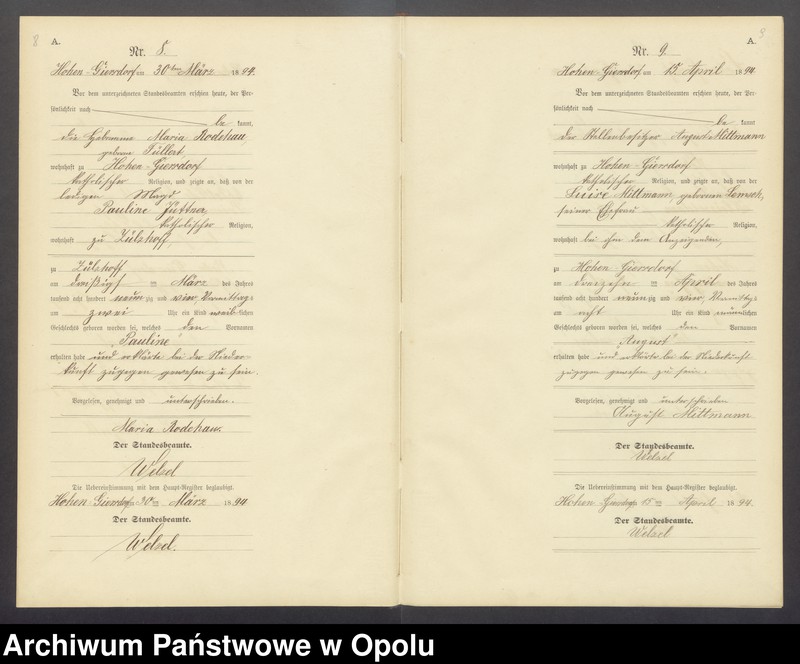 8
A.
Nr. 8.
Hohen-Giersdorf am 30ten März 1894.
Vor dem unterzeichneten Standesbeamten erschien heute, der Per-
sönlichkeit nach
be kannt,
die Hebamme Maria Rodehau,
geborne
wohnhaft zu Hohen-Giersdorf
katholischer Religion, und zeigte an, daß von der
ledigen Magd
Pauline Jüttner,
katholischer Religion,
wohnhaft zu Zülzhoff,
zu Zülzhoff
am dreißigsten März des Jahres
tausend acht hundert neunzig und vier, Vormittags
um zwei Uhr ein Kind weiblichen
Geschlechts geboren worden sei, welches den Vornamen
"Pauline"
erhalten habe und erklärte bei der Nieder-
kunft zugegen gewesen zu sein.
Vorgelesen, genehmigt und unterschrieben.
Maria Rodehau.
Der Standesbeamte.
Welzel
Die Uebereinstimmung mit dem Haupt-Register beglaubigt.
Hohen-Giersdorf am 30ten März 1894
Der Standesbeamte.
Welzel.
9
A.
Nr. 9.
Hohen-Giersdorf am 15. April 1894.
Vor dem unterzeichneten Standesbeamten erschien heute, der Per-
sönlichkeit nach
be kannt,
der Stellenbesitzer August Mittmann
wohnhaft zu Hohen-Giersdorf
katholischer Religion, und zeigte an, daß von der
Luise Mittmann, gebornen
seiner Ehefrau
katholischer Religion,
wohnhaft bei ihm dem Anzeigenden,
zu Hohen Giersdorf
am dreizehnten April des Jahres
tausend acht hundert neunzig und vier, Vormittags
um acht Uhr ein Kind männlichen
Geschlechts geboren worden sei, welches den Vornamen
"August"
erhalten habe und erklärte bei der Niederkunft
zugegen gewesen zu sein.
Vorgelesen, genehmigt und unterschrieben
August Mittmann
Der Standesbeamte.
Welzel
Die Uebereinstimmung mit dem Haupt-Register beglaubigt.
Hohen-Giersdorf 15ten April 1894.
Der Standesbeamte.
Welzel
Archiwum Państwowe w Opolu